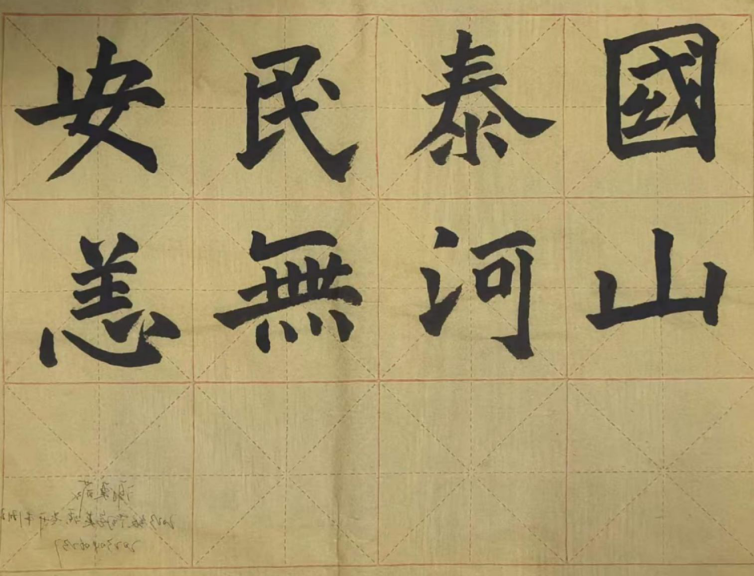 國泰民安
山河無恙